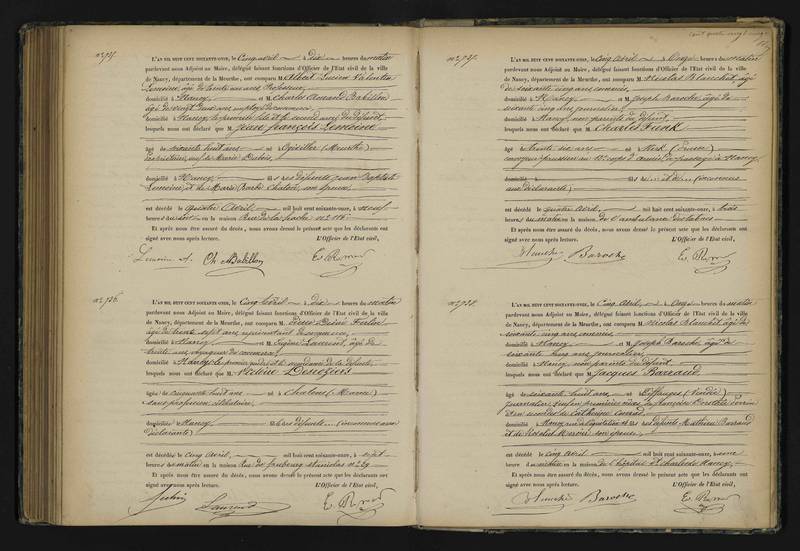 L'AN MIL HUIT CENT SOIXANTE-ONZE, le Cinq avril à dix heures du matin
pardevant nous Adjoint au Maire, délégué faisant fonctions d'Officier de l'Etat civil de la ville
de Nancy, département de la Meurthe, ont comparu M. Albert Lucien
Lemoine, âgé de trente ans, Professeur,
domicilié à Nancy et M. Charles Armand Babillon
âgé de vingt huit ans, employé de commerce,
domicilié à Nancy, le premier fils et le second ami du défunt,
lesquels nous ont déclaré que M. Jean François Lemoine
âgé de soixante huit ans né à Ogéviller (Meurthe)
propriétaire, veuf de Marie Dubois,
domicilié à Nancy, fils des défunts Jean Baptiste
Lemoine, et de Marie Barbe Chaton, son épouse,
est décédé le quatre Avril, mil huit cent soixante-onze, à neuf
heures du soir en la maison Rue de la hache n° 116
Et après nous être assuré du décès, nous avons dressé le présent acte que les déclarants ont
signé avec nous après lecture. L'Officier de l'Etat civil,
Lemoine A. Ch. Babillon
L'AN MIL HUIT CENT SOIXANTE-ONZE, le Cinq Avril à dix heures du matin
pardevant nous Adjoint au Maire, délégué faisant fonctions d'Officier de l'Etat civil de la ville
de Nancy, département de la Meurthe, ont comparu M. Pierre
âgé de trente sept ans, représentant de commerce,
domicilié à Nancy et M. Eugène Laurent, âgé de
trente ans, voyageur de commerce,
domicilié à Nancy, le premier et le second de la défunte,
lesquels nous ont déclaré que M.
âgée de cinquante huit ans née à Chalons (Marne)
sans profession, célibataire,
domiciliée à Nancy, fille des défunts (inconnus aux
déclarants)
est décédée le Cinq Avril, mil huit cent soixante-onze, à sept
heures du matin en la maison rue du faubourg Stanislas n° 29
Et après nous être assuré du décès, nous avons dressé le présent acte que les déclarants ont
signé avec nous après lecture. L'Officier de l'Etat civil,
Laurent
L'AN MIL HUIT CENT SOIXANTE-ONZE, le Cinq Avril à Onze heures du matin
pardevant nous Adjoint au Maire, délégué faisant fonctions d'Officier de l'Etat civil de la ville
de Nancy, département de la Meurthe, ont comparu M. Nicolas Blanchet, âgé
de soixante cinq ans, commis,
domicilié à Nancy et M. Joseph Baroche, âgé de
soixante cinq ans, journalier,
domicilié à Nancy, non parents du défunt,
lesquels nous ont déclaré que M. Charles Funk
âgé de trente six ans né à (Prusse)
convoyeur prussien au 12e corps d'armée de passage à Nancy,
domicilié à fils de et de (inconnus
aux déclarants)
est décédé le quatre Avril, mil huit cent soixante-onze, à trois
heures du matin en la maison de l'ambulance des tabacs
Et après nous être assuré du décès, nous avons dressé le présent acte que les déclarants ont
signé avec nous après lecture. L'Officier de l'Etat civil,
Blanchet Baroche
L'AN MIL HUIT CENT SOIXANTE-ONZE, le Cinq Avril, à Onze heures du matin
pardevant nous Adjoint au Maire, délégué faisant fonctions d'Officier de l'Etat civil de la ville
de Nancy, département de la Meurthe, ont comparu M. Nicolas Blanchet, âgé de
soixante cinq ans, commis,
domicilié à Nancy et M. Joseph Baroche, âgé de
soixante cinq ans, journalier,
domicilié à Nancy, non parents du défunt,
lesquels nous ont déclaré que M. Jacques Barraud
âgé de soixante huit ans, né à Tiffauges (Vendée)
journalier, veuf en premières noces de Françoise Dorothée
et en secondes de Catherine
domicilié à Nancy, fils des défunts Mathieu Barraud
et de son épouse,
est décédé le Cinq Avril mil huit cent soixante-onze, à une
heure du matin en la maison de l'hôpital St Charles de Nancy,
Et après nous être assuré du décès, nous avons dressé le présent acte que les déclarants ont
signé avec nous après lecture. L'Officier de l'Etat civil,
Blanchet Baroche